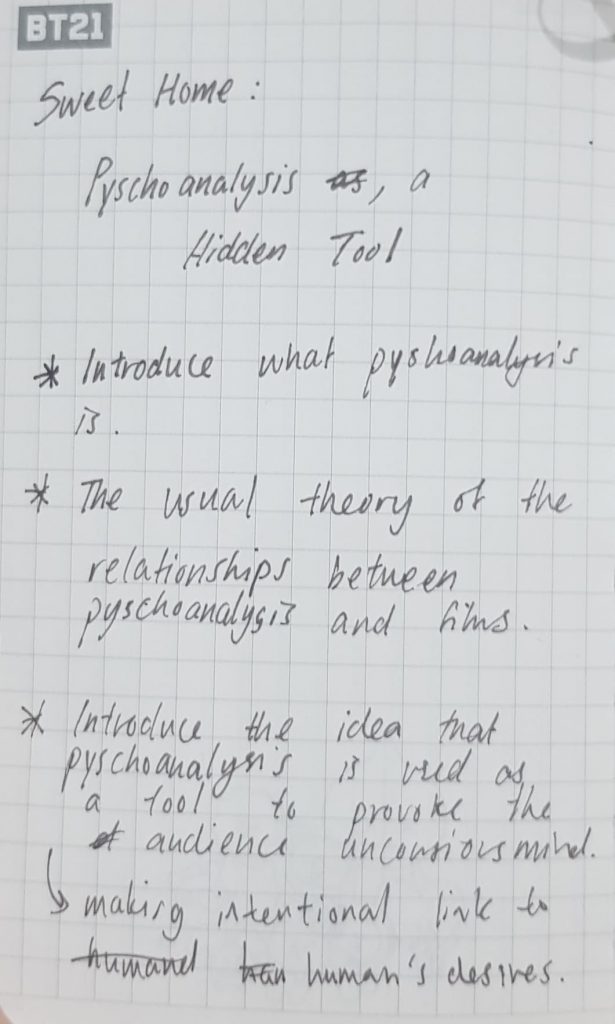 BT21
Sweet Home :
Pyschoanalysis as, a
Hidden Tool
* Introduce what pyshoanalysis
is.
* The usual theory of the
relationships between
pyschoanalysis and films.
* Introduce the idea that
pyschoanalysis is used as
a tool to provoke the
of audience unconsiousmind.
↳ making intentional link to
humand han human's desires.